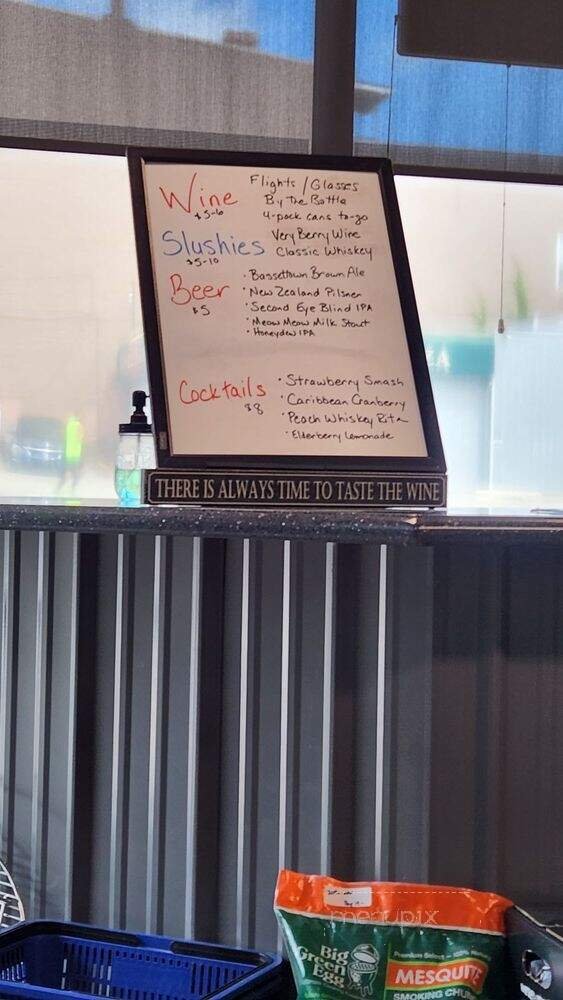 Wine Flights / Glasses
$5-6 By The Bottle
4-pack cans to-go
Slushies Very Berry Wine
$5-10 Classic Whiskey
Beer • Bassettown Brown Ale
$5 • New Zealand Pilsner
• Second Eye Blind IPA
• Meow Meow Milk Stout
• Honeydew IPA
Cocktails • Strawberry Smash
$8 • Caribbean Cranberry
• Peach Whiskey Rita
• Elderberry Lemonade
THERE IS ALWAYS TIME TO TASTE THE WINE
menupix
Big
Green
Egg
Premium Select
MESQUITE
SMOKING